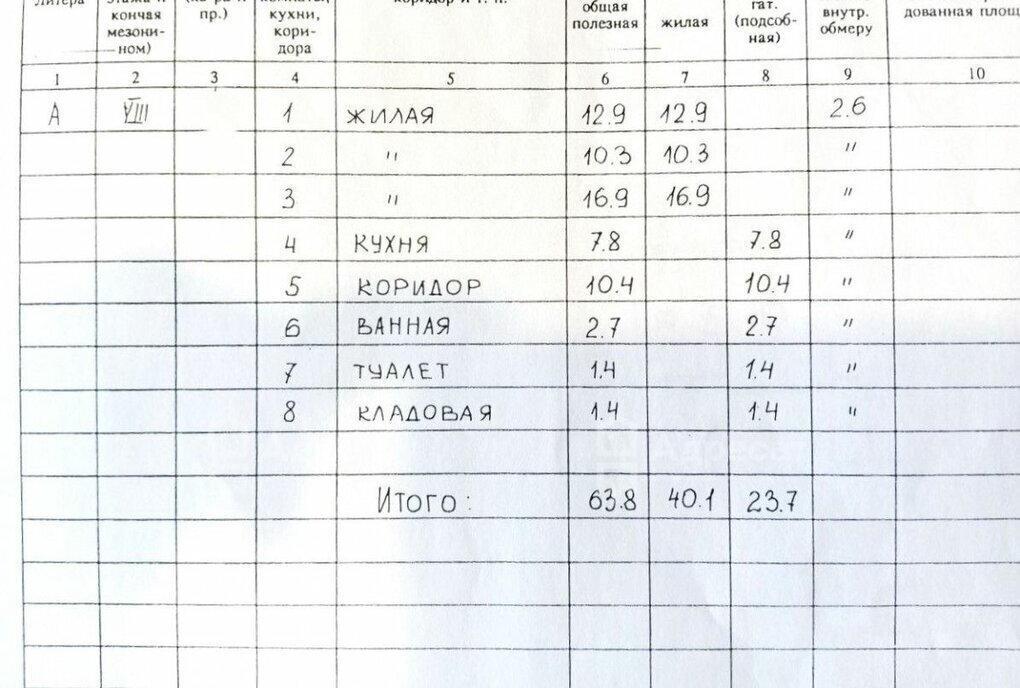 Литера этажа и комнаты, коридор и т. п. общая гат. внутр. дованная площ
кончая пр.) кухни, полезная жилая (подсоб- обмеру
мезони- кори- ная)
ном) дора
1 2 3 4 5 6 7 8 9 10
А VIII 1 ЖИЛАЯ 12.9 12.9 2.6
2 " 10.3 10.3 "
3 " 16.9 16.9 "
4 КУХНЯ 7.8 7.8 "
5 КОРИДОР 10.4 10.4 "
6 ВАННАЯ 2.7 2.7 "
7 ТУАЛЕТ 1.4 1.4 "
8 КЛАДОВАЯ 1.4 1.4 "
Итого: 63.8 40.1 23.7